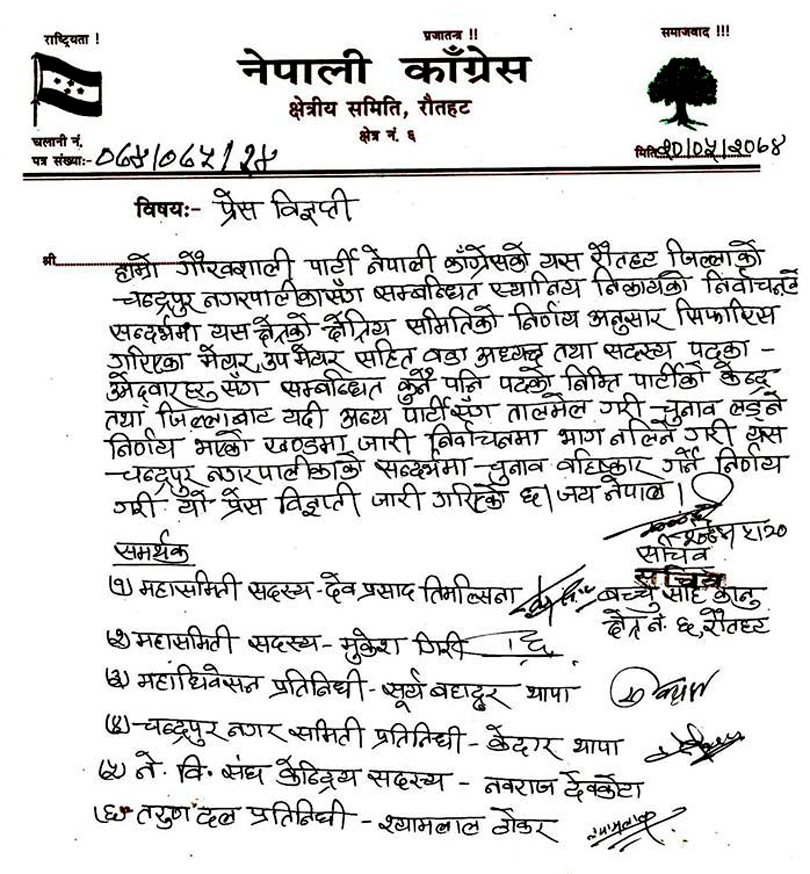 राष्ट्रियता !
प्रजातन्त्र !!
समाजवाद !!!
नेपाली काँग्रेस
क्षेत्रीय समिति, रौतहट
क्षेत्र नं. ६
चलानी नं.
पत्र संख्याः- ०६४/०६५/२४
मिति २०/०५/२०७४
विषयः- प्रेस विज्ञप्ती
श्री
हाम्रो गौरवशाली पार्टी नेपाली काँग्रेसको यस रौतहट जिल्लाको
चन्द्रपुर नगरपालीकासँग सम्बन्धित स्थानिय निकायको निर्वाचनके
सन्दर्भमा यस क्षेत्रको क्षेत्रिय समितिको निर्णय अनुसार सिफारिस
गरिएका मेयर, उप मेयर सहित वडा अध्यक्ष तथा सदस्य पदका -
उमेदवारहरु सँग सम्बन्धित कुनै पनि पदको निम्ति पार्टीको केन्द्र
तथा जिल्लाबाट यदी अन्य पार्टीसँग तालमेल गरी चुनाव लड्ने
निर्णय भएको खण्डमा जारी निर्वाचनमा भाग नलिने गरी यस
चन्द्रपुर नगरपालीकाको सन्दर्भमा चुनाव वहिष्कार गर्ने निर्णय
गरी यो प्रेस विज्ञप्ती जारी गरिएको छ। जय नेपाल।
सचिव
सचिव
बच्चु साह कानु
क्षेत्र नं. ६, रौतहट
समर्थक
(१) महासमिती सदस्य - देव प्रसाद तिमल्सिना
(२) महासमिती सदस्य - मुकेश गिरी
(३) महाधिवेसन प्रतिनिधी - सूर्य बहादुर थापा
(४) चन्द्रपुर नगर समिती प्रतिनिधी - केदार थापा
(५) ने. वि. संघ केन्द्रिय सदस्य - नवराज देवकोटा
(६) तरुण दल प्रतिनिधी - श्यामलाल ठोकर